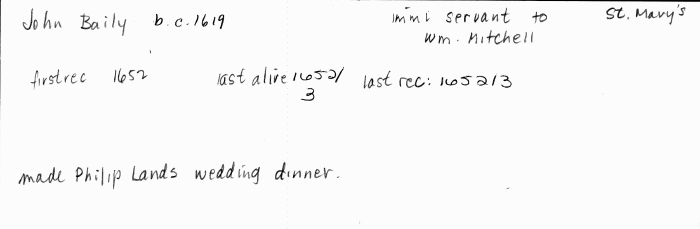 John Baily b.c.1619 immi servant to St. Mary's
Wm. Mitchell
first rec 1652 last alive 1652/ last rec: 1652/3
3
made Philip Lands wedding dinner.